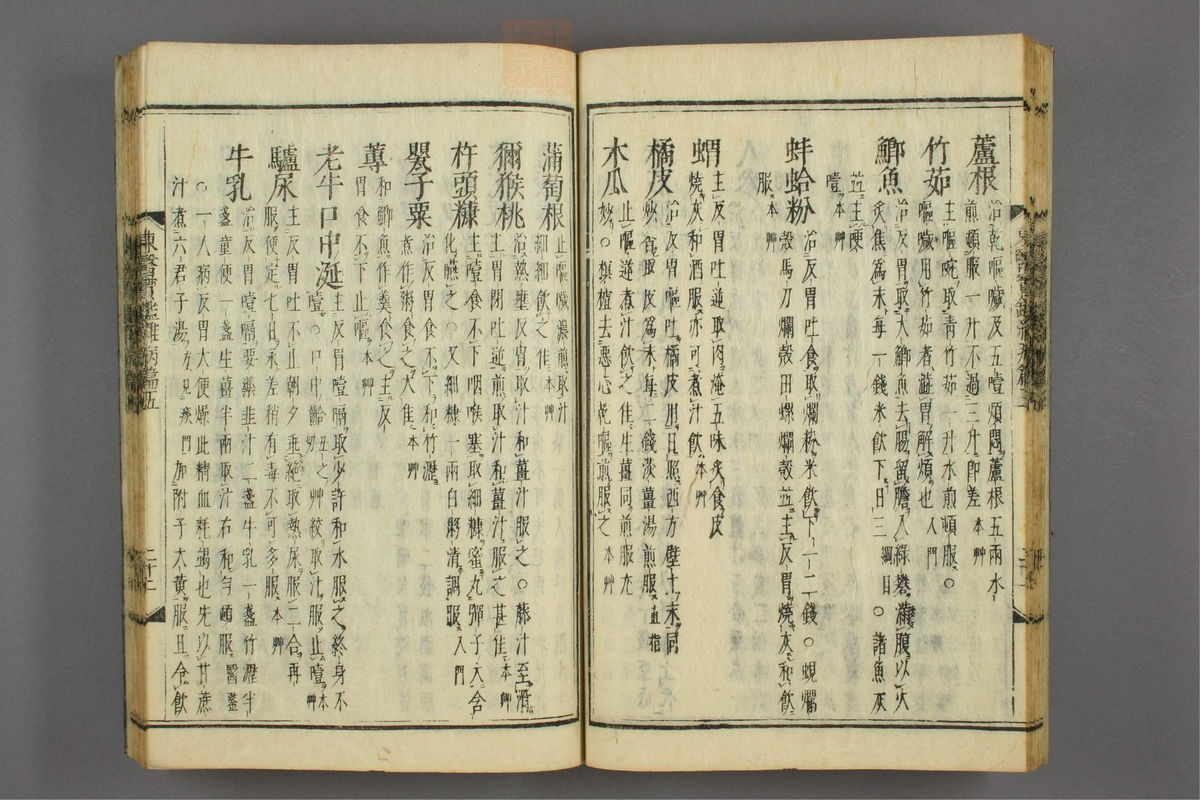 蘆根 治乾嘔噦及五噎煩悶蘆根五兩水
煎頓服一升不過三升卽差 本艸
竹茹 主嘔啘靑竹茹一升水煎頓服○
嘔噦用竹茹者溢胃解煩也 入門
鯽魚 治反胃取大鯽魚去腸留膽入綠礬滿腹以火
炙焦爲末每一錢米飮下日三 綱目 ○諸魚灰
並主哽
噎 本艸
蚌蛤粉 治反胃吐食取爛粉米飮下一二錢○蜆爛
殼馬刀爛殼田螺爛殼並主反胃燒灰和飮
服 本艸
蝟 主反胃吐逆取肉淹五味炙食皮
燒灰和酒服亦可煮汁飮 本艸
橘皮 治反胃嘔吐橘皮用日照西方壁土末同
炒食取皮爲末每二錢淡薑湯煎服 直指
木瓜 止嘔逆煮汁飮之佳生薑同煎服尤
妙○榠樝去惡心吃嘔煎服之 本艸
蒲萄根 止嘔噦濃煎取汁
細細飮之佳 本艸
獼猴桃 治熱壅反胃取汁和薑汁服之○藤汁至滑
主胃閉吐逆煎取汁和薑汁服之甚佳 本艸
杵頭糠 主噎食不下咽喉塞取細糠蜜丸彈子大含
化嚥之○又細糠一兩白粥淸調服 入門
罌子粟 治反胃食不下和竹瀝
煮作粥食之大佳 本艸
蓴 和鯽魚作羹食之主反
胃食不下止嘔 本艸
老牛口中涎 主反胃噎膈取少許和水服之終身不
噎○口中齝 丑之 艸絞取汁服止噎 本艸
驢尿 主反胃吐不止朝夕垂絶取熱尿服二合再
服便定七日永差稍有毒不可多服 本艸
牛乳 治反胃噎膈要藥韭汁二盞牛乳一盞竹瀝半
盞童便一盞生薑半兩取汁右和勻頓服 醫鑑
○一人病反胃大便燥此精血耗竭也先以甘蔗
汁煮六君子湯 方見痰門 加附子大黃服且令飮